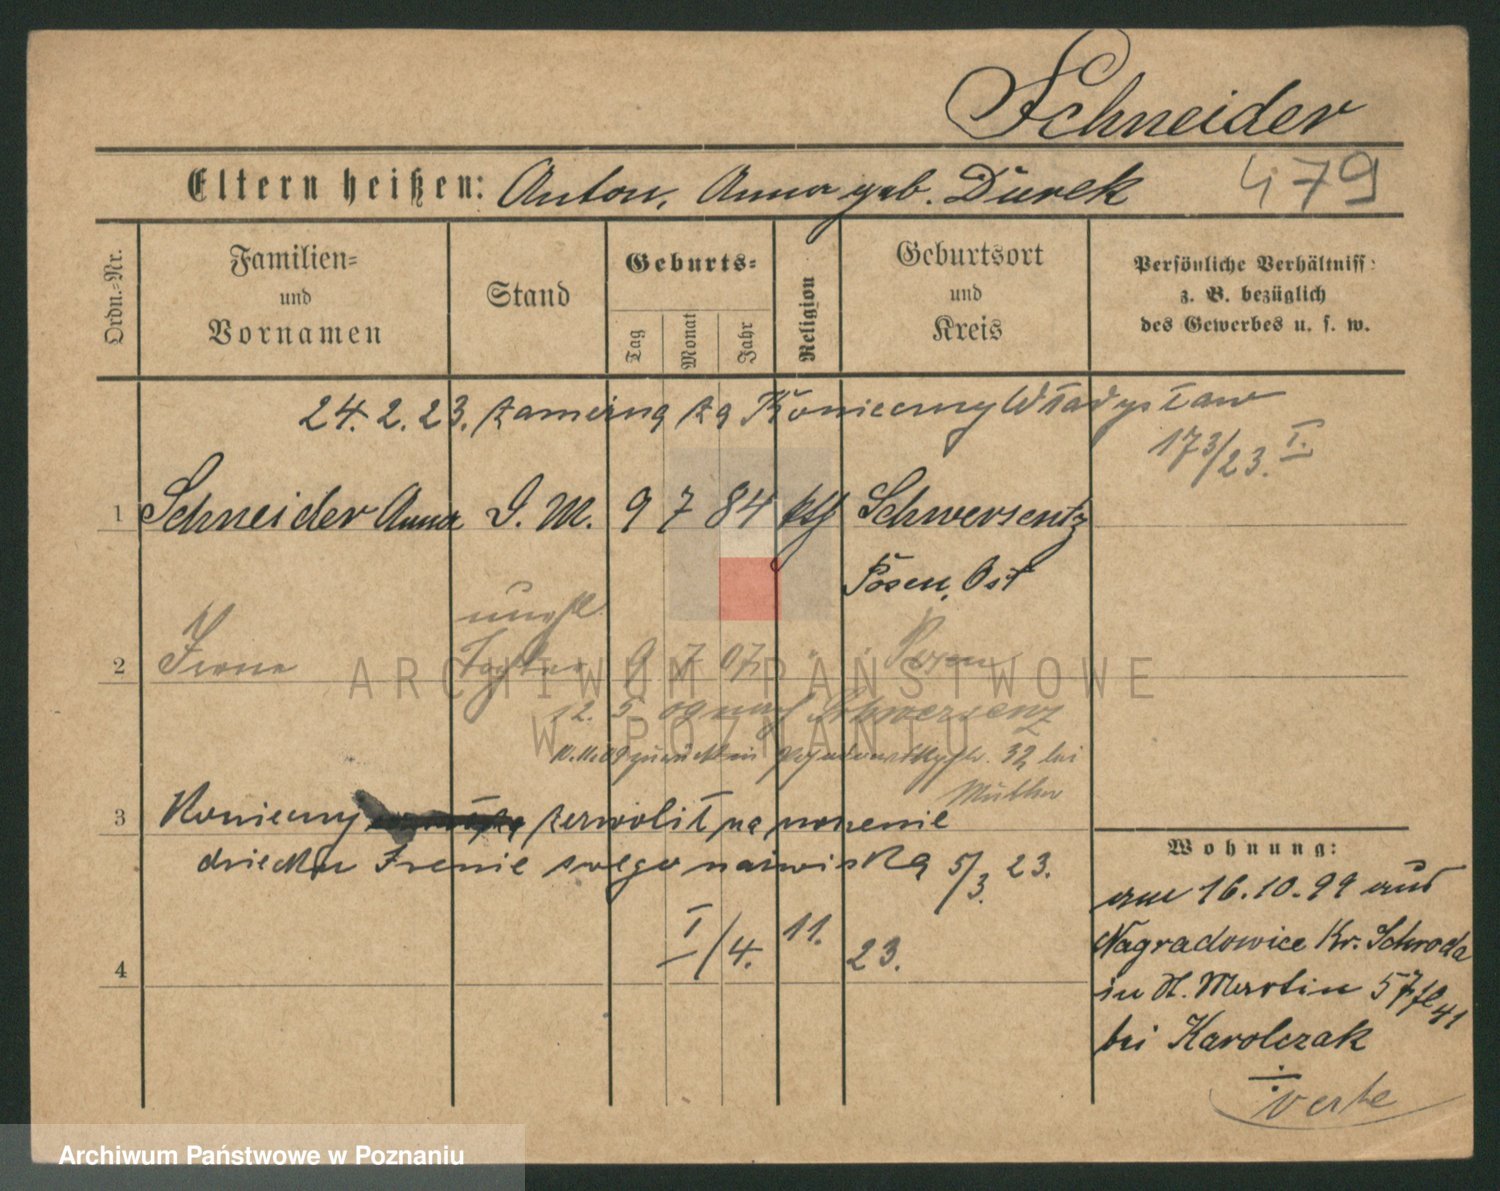 Schneider
Eltern heißen: Anton, Anna geb. Durek
479
Ordn.-Nr.
Familien-
und
Vornamen
Stand
Geburts-
Tag
Monat
Jahr
Religion
Geburtsort
und
Kreis
Persönliche Verhältniss-
z. B. bezüglich
des Gewerbes u. s. w.
24. 2. 23. Konieczny Władysław
173/23. I.
1 Schneider Anna D. M. 9 7 84 kth Schwersentz
Posen, Ost
2 Irena Tochter 9 7 07 Posen
12. 5. 09 nach Schwersenz
zurück in 32 bei
Mutter
3 Konieczny zezwolił na noszenie
dziecku Irenie swego nazwiska 5/3. 23.
I/4. 11. 23.
4
Wohnung:
am 16.10.99 aus
Nagradowice Kr. Schroda
in St. Martin 57
bei Karolczak
verte
ARCHIWUM PAŃSTWOWE
W POZNANIU
Archiwum Państwowe w Poznaniu